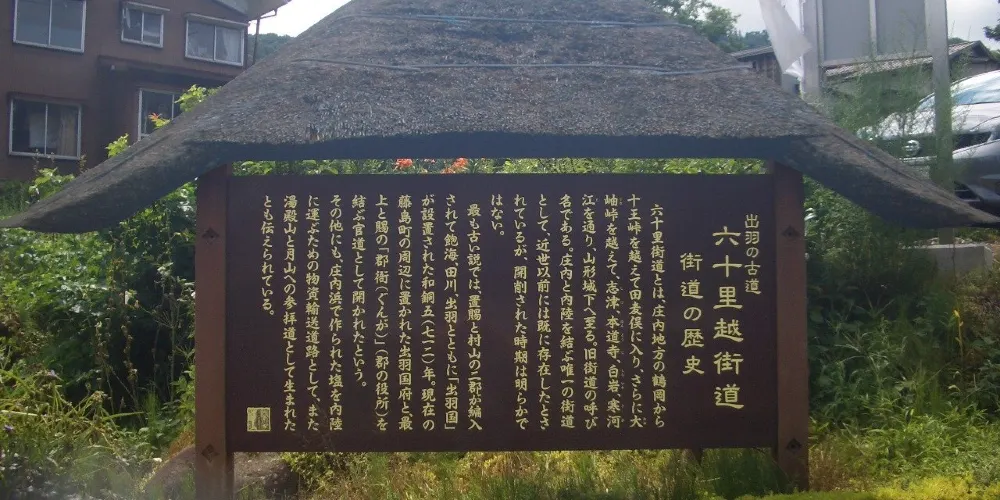 出羽の古道
六十里越街道
街道の歴史
六十里街道とは、庄内地方の鶴岡から
十三峠を越えて田麦俣に入り、さらに大
岫峠を越えて、志津、本道寺、白岩、寒河
江を通り、山形城下へ至る。旧街道の呼び
名である。庄内と内陸を結ぶ唯一の街道
として、近世以前には既に存在したとさ
れているが、開削された時期は明らかで
はない。
最も古い説では、置賜と村山の二郡が編入
されて飽海、田川、出羽とともに「出羽国」
が設置された和銅五（七一二）年。現在の
藤島町の周辺に置かれた出羽国府と最
上と賜の「郡衙（ぐんが）」（郡の役所）を
結ぶ官道として開かれたという。
その他にも、庄内浜で作られた塩を内陸
に運ぶための物資輸送道路として、また
湯殿山と月山への参拝道として生まれた
とも伝えられている。